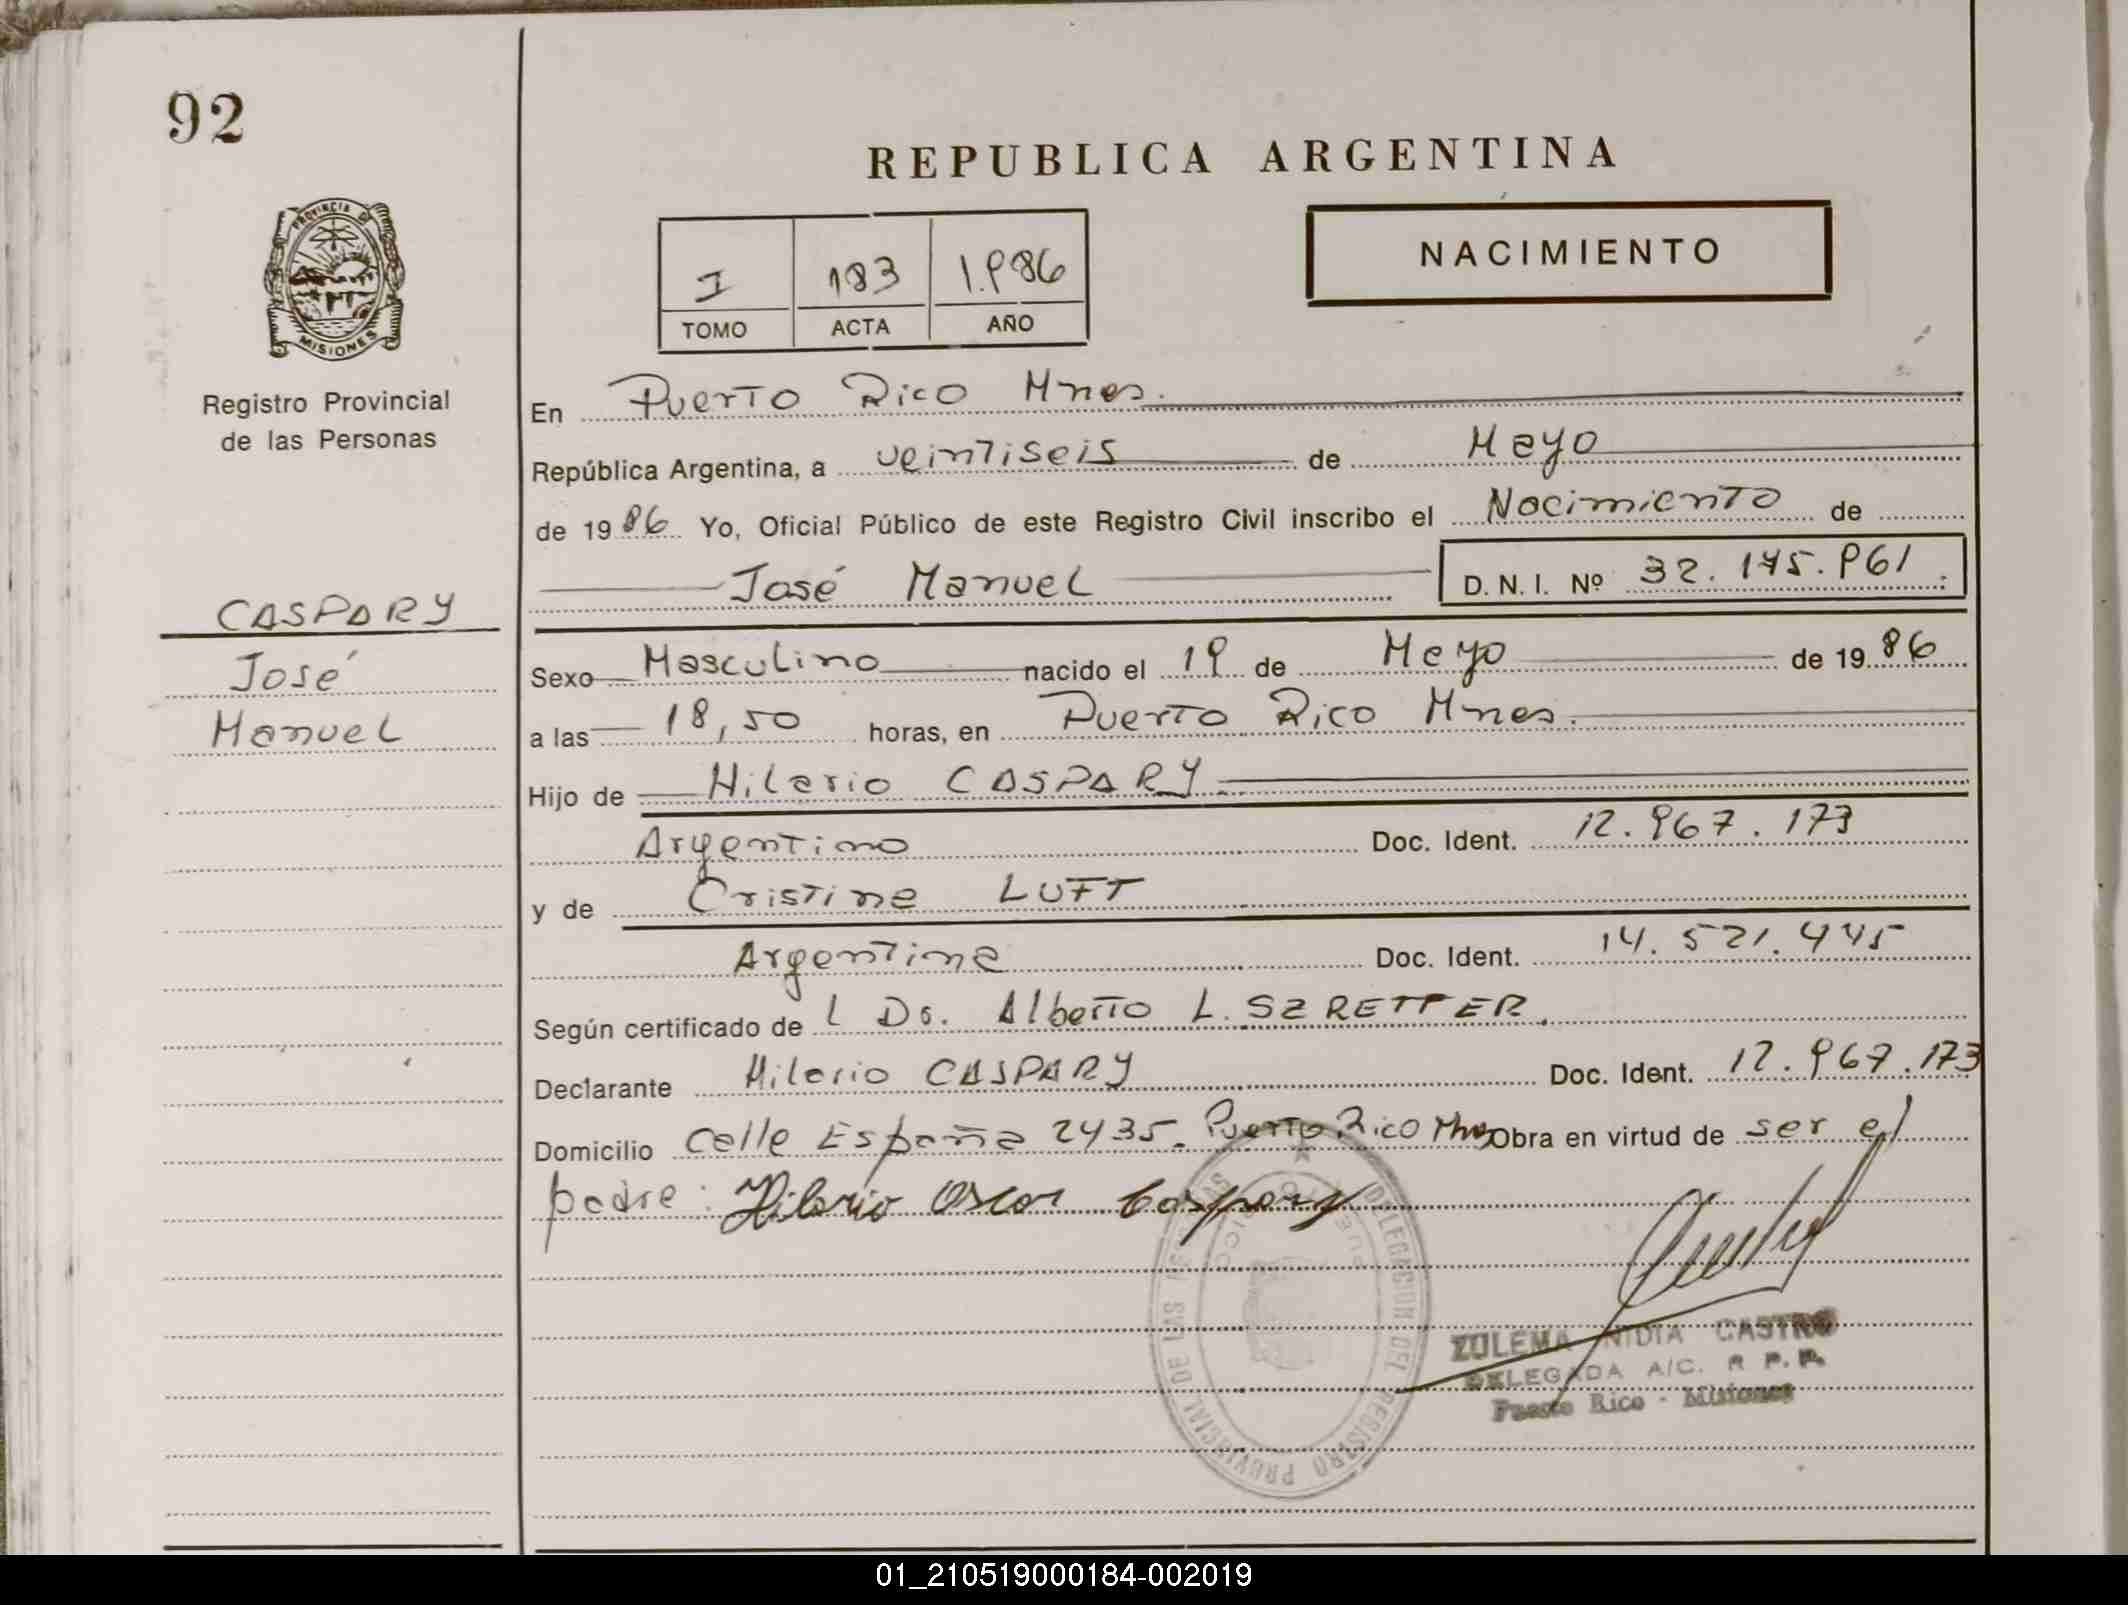 92
REPUBLICA ARGENTINA
PROVINCIA DE
MISIONES
NACIMIENTO
I 183 1.986
TOMO ACTA AÑO
Registro Provincial
de las Personas
En Puerto Rico Mnes.
República Argentina, a veintiseis de Mayo
de 1986 Yo, Oficial Público de este Registro Civil inscribo el Nacimiento de
José Manuel D. N. I. Nº 32.145.961
CASPARY
José
Manuel
Sexo Masculino nacido el 19 de Mayo de 1986
a las 18,50 horas, en Puerto Rico Mnes.
Hijo de Hilario CASPARY
Argentino Doc. Ident. 12.967.173
y de Cristina LUFT
Argentina Doc. Ident. 14.521.445
Según certificado de l Dr. Alberto L. SZRETTER.
Declarante Hilario CASPARY Doc. Ident. 12.967.173
Domicilio Calle España 2435. Puerto Rico Mnes Obra en virtud de ser el
padre: Hilario Oscar Caspary
DELEGACION DEL REGISTRO PROVINCIAL DE LAS PERSONAS
PUERTO RICO
ZULEMA NIDIA CASTRO
DELEGADA A/C. R.P.P.
Puerto Rico - Misiones
01_210519000184-002019